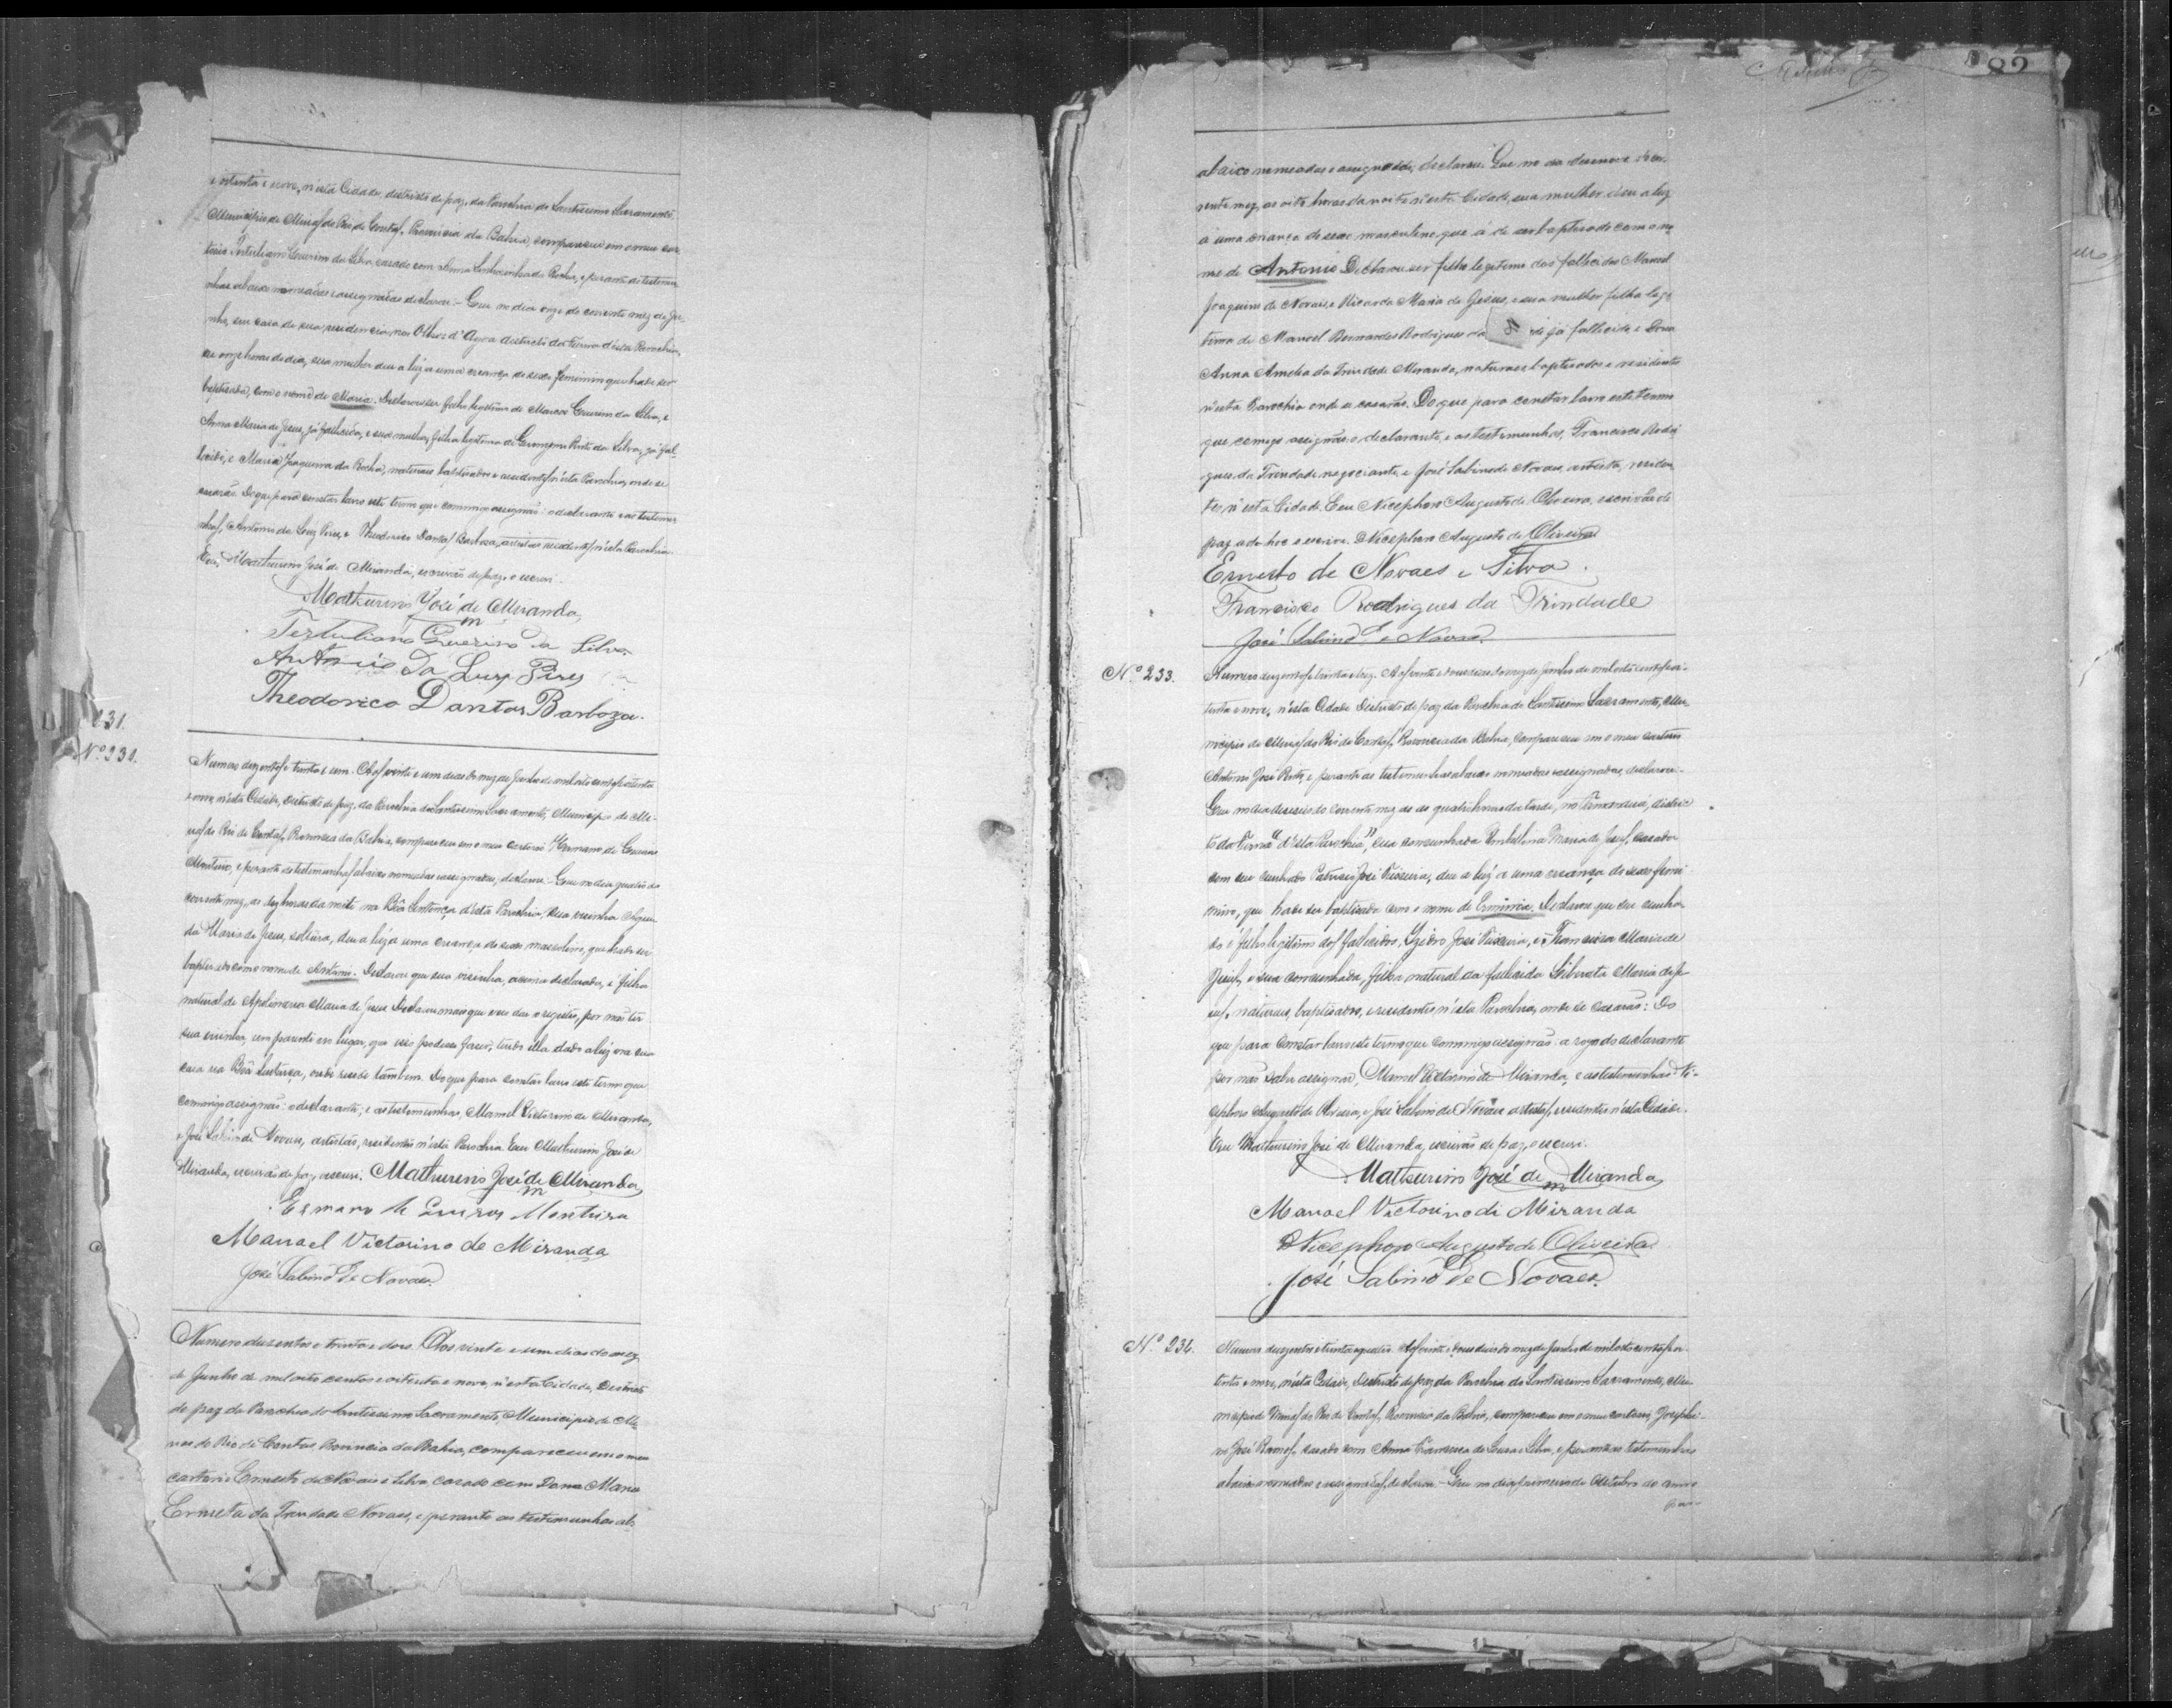 e oitenta e nove, n'esta Cidade, districto de paz, da Parochia do Santissimo Sacramento
Municipio de Minas do Rio de Contas, Provincia da Bahia, compareceu em o meu car
torio Tertuliano Guerino da Silva, casado com Anna da Rocha, e perante as testemu
nhas abaixo nomeadas e assignadas declarou:- Que no dia onze do corrente mez de Ju
nho, em casa de sua residencia, nos Olhos d'Agoa districto da Furna d'esta Parochia,
as onze horas do dia, sua mulher deu a luz a uma creança de sexo feminin que hade ser
baptisada, com o nome de Maria. Declarou ser filho legitimo de Marcos Guerino da Silva, e
Anna Maria de Jesus, já fallecida, e sua mulher, filha legitima de Pinto da Silva, já fal-
lecido, e Maria Joaquina da Rocha, naturaes baptisados e residentes n'esta Parochia, onde se
casarão. Do que para constar lavro este termo que commigo assignão: o declarante e as testemu
nhas, Antonio da Luz Pires, e Theodorico Dantas Barboza, artistas residentes n'esta Parochia.
Eu, Mathurino José de Miranda, escrivão de paz, o escrevi.
Mathurino José de Miranda
Tertuliano Guerino da Silva
Antonio Da Luz Pires
Theodorico Dantas Barboza.
231.
Nº 231.
Numero duzentos e trinta e um. Aos vinte e um dias do mez de Junho de mil oito centos e oitenta
e nove, n'esta Cidade, districto de paz, da Parochia do Santissimo Sacramento, Municipio de Mi-
nas do Rio de Contas, Provincia da Bahia, compareceu em o meu cartorio Hermano de
Monteiro, e perante as testemunhas abaixo nomeadas e assignadas, declarou:- Que no dia quatro do
corrente mez, as dez horas da noite na Bôa Sentença d'esta Parochia, sua visinha
da Maria de Jesus, solteira, deu a luz a uma creança de sexo masculino, que hade ser
baptisado com o nome de Antonio. Declarou que sua visinha, acima declarada, é filha
natural de Apolinaria Maria de Jesus Declarou mais que veio dar o registro, por não ter
sua visinha, um parente no lugar, que isso podesse fazer, tendo ella dado a luz em sua
casa na Bôa Sentença, onde reside tambem. Do que para constar lavro este termo que
commigo assignão: o declarante, e as testemunhas, Manoel Victorino de Miranda,
e José Sabino de Novaes, artistas, residentes n'esta Parochia. Eu Mathurino José de
Miranda, escrivão de paz, o escrevi. Mathurino José de Miranda
Ermano de Monteiro
Manoel Victorino de Miranda
José Sabino de Novaes.
Numero duzentos e trinta e dois. Aos vinte e um dias do mez
de Junho de mil oito centos e oitenta e nove, n'esta Cidade, Districto
de paz da Parochia do Santissimo Sacramento, Municipio de Mi
nas do Rio de Contas Provincia da Bahia, compareceu em o meu
cartorio Ernesto de Novaes e Silva casado com Dona Maria
Ermeta da Trindade Novaes, e perante as testemunhas ab
82
abaixo nomeadas e assignadas, declarou: Que no dia desenove do cor
rente mez, as oito horas da noite n'esta Cidade, sua mulher deu a luz
a uma criança de sexo masculino que á de ser baptisado com o no
me de Antonio Declarou ser filho legitimo dos fallecidos Manoel
Joaquim de Novaes, e Ricarda Maria de Jesus, e sua mulher filha legi
tima de Manoel Bernardes Rodrigues da já fallecido e Dona
Anna Amelia da Trindade Miranda, naturaes baptisados e residentes
n'esta Parochia onde se casarão. Do que para constar lavro este termo
que comigo assignão o declarante, e as testemunhas, Francisco Rodri
gues da Trindade negociante, e José Sabino de Novaes, artista, residen
tes n'esta Cidade. Eu Nicephoro Augusto de Oliveira, escrivão de
paz ad hoc o escrivi. Nicephoro Augusto de Oliveira
Ernesto de Novaes e Silva.
Francisco Rodrigues da Trindade
José Sabino de Novaes
Nº 233.
Numero duzentos e trinta e trez. Aos vinte e dous dias do mez de Junho de mil oito centos e oi-
tenta e nove, n'esta Cidade Districto de paz da Parochia do Santissimo Sacramento, Mu-
nicipio de Minas do Rio de Contas, Provincia da Bahia, compareceu em o meu cartorio
Antonio José Pinto, e perante as testemunhas abaixo nomeadas e assignadas, declarou:-
Que no dia deseseis do corrente mez as quatro horas da tarde, no districto
to da Furna "d'esta Parochia", sua concunhada Umbellina Maria de Jesus, casada
com seu cunhado Patricio José Teixeira, deu a luz a uma creança do sexo femi
nino, que hade ser baptisada com o nome de Erminia. Declarou que seu cunha-
do é filho legitimo dos fallecidos, Izidro José Teixeira, e Francisca Maria de
Jesus, e sua concunhada, filha natural da fallecida Liberata Maria de Je
sus, naturaes, baptisados, e residentes n'esta Parochia, onde se casarão: Do
que para constar lavro este termo que commigo assignão: a rogo do declarante
por não saber assignar, Manoel Victorino de Miranda, e as testemunhas: Ni-
cephoro Augusto de Oliveira, e José Sabino de Novaes artistas, residentes n'esta Cidade.
Eu Mathurino José de Miranda, escrivão de paz, o escrevi.
Mathurino José de Miranda
Manoel Victorino de Miranda
Nicephoro Augusto de Oliveira
José Sabino de Novaes.
Nº 234.
Numero duzentos e trinta e quatro. Aos vinte e dous dias do mez de Junho de mil oito centos e oi-
tenta e nove, n'esta Cidade, Districto de paz da Parochia do Santissimo Sacramento, Mu-
nicipio de Minas do Rio de Contas, Provincia da Bahia, compareceu em o meu cartorio, Josephi-
no José Ramos, casado com Anna Francisca de Souza e Silva, e perante as testemunhas
abaixo nomeadas e assignadas, declarou:- Que no dia primeiro de Outubro do anno